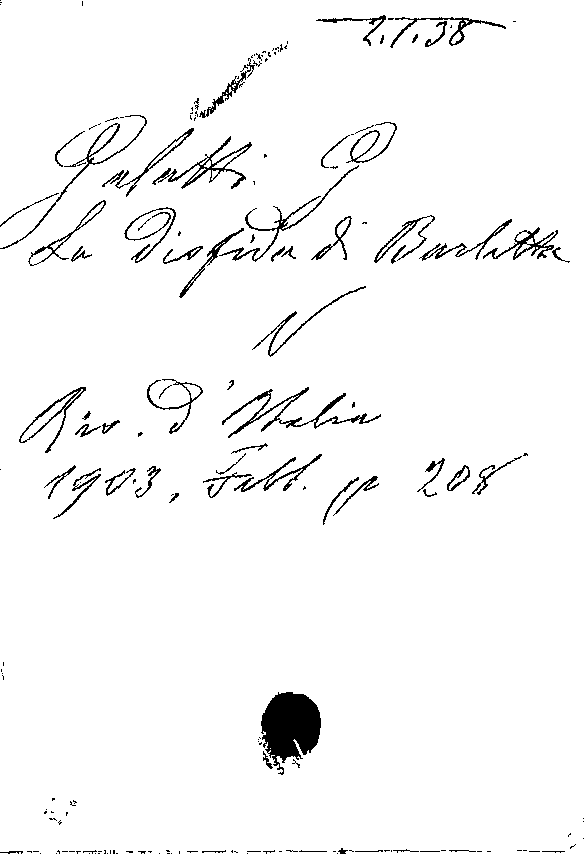 2.1.38
Galatti. G
La Disfida di Barletta
V
Riv. d'Italia
1903, Febb. p 208